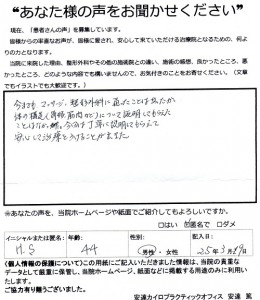 “あなた様の声をお聞かせください”
現在、「患者さんの声」を募集しています。
皆様からの率直なお声が、皆様に愛され、安心して来ていただける治療院となるための、何よりの力となります。
当院に来院した理由、整形外科やその他の施術院との違い、施術の感想、良かったところ、悪かったところ、どのような内容でも構いませんので、お気付きのことをお寄せください。(文章でもイラストでも大歓迎です。)
今までも、マッサージ、整形外科に通ったことはあったが
体の構造と(背骨、筋肉など)について説明してもらえた
ことはなかった
安心して治療をうけることができました
※あなたの声を、当院ホームページや紙面でご紹介してもよろしいですか。
□はい ☑匿名で □ダメ
イニシャルまたは匿名: 年齢: 記入日:
H.S 44 男性・女性 25年3月19日
《個人情報の保護について》この用紙にご記入いただきました情報は、当院の貴重な
データとして厳重に保管し、当院ホームページ、紙面などに掲載する用途のみに利用い
たします。
ご協力有り難うございました。
安達カイロプラクティックオフィス 安達 風